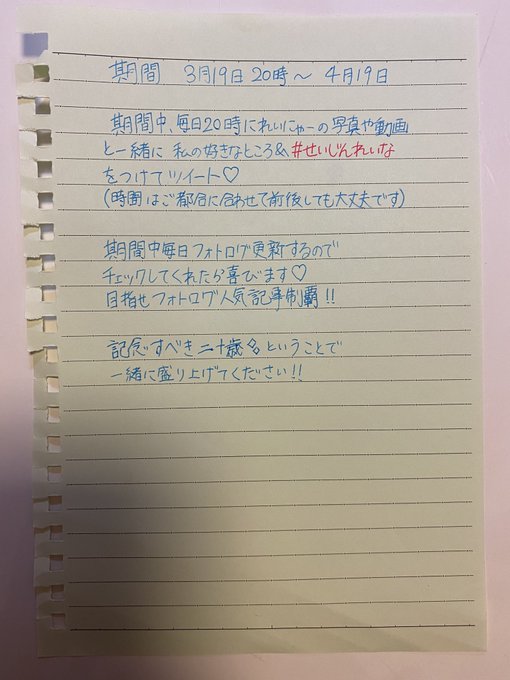 期間 3月19日20時〜 4月19日
期間中、毎日20時にれいにゃーの写真や動画
と一緒に 私の好きなところ&#せいじんれいな
をつけてツイート♡
(時間はご都合に合わせて前後しても大丈夫です)
期間中毎日フォトログ更新するので
チェックしてくれたら喜びます♡
目指せフォトログ人気記事制覇!!
記念すべき二十歳ということで
一緒に盛り上げてください!!